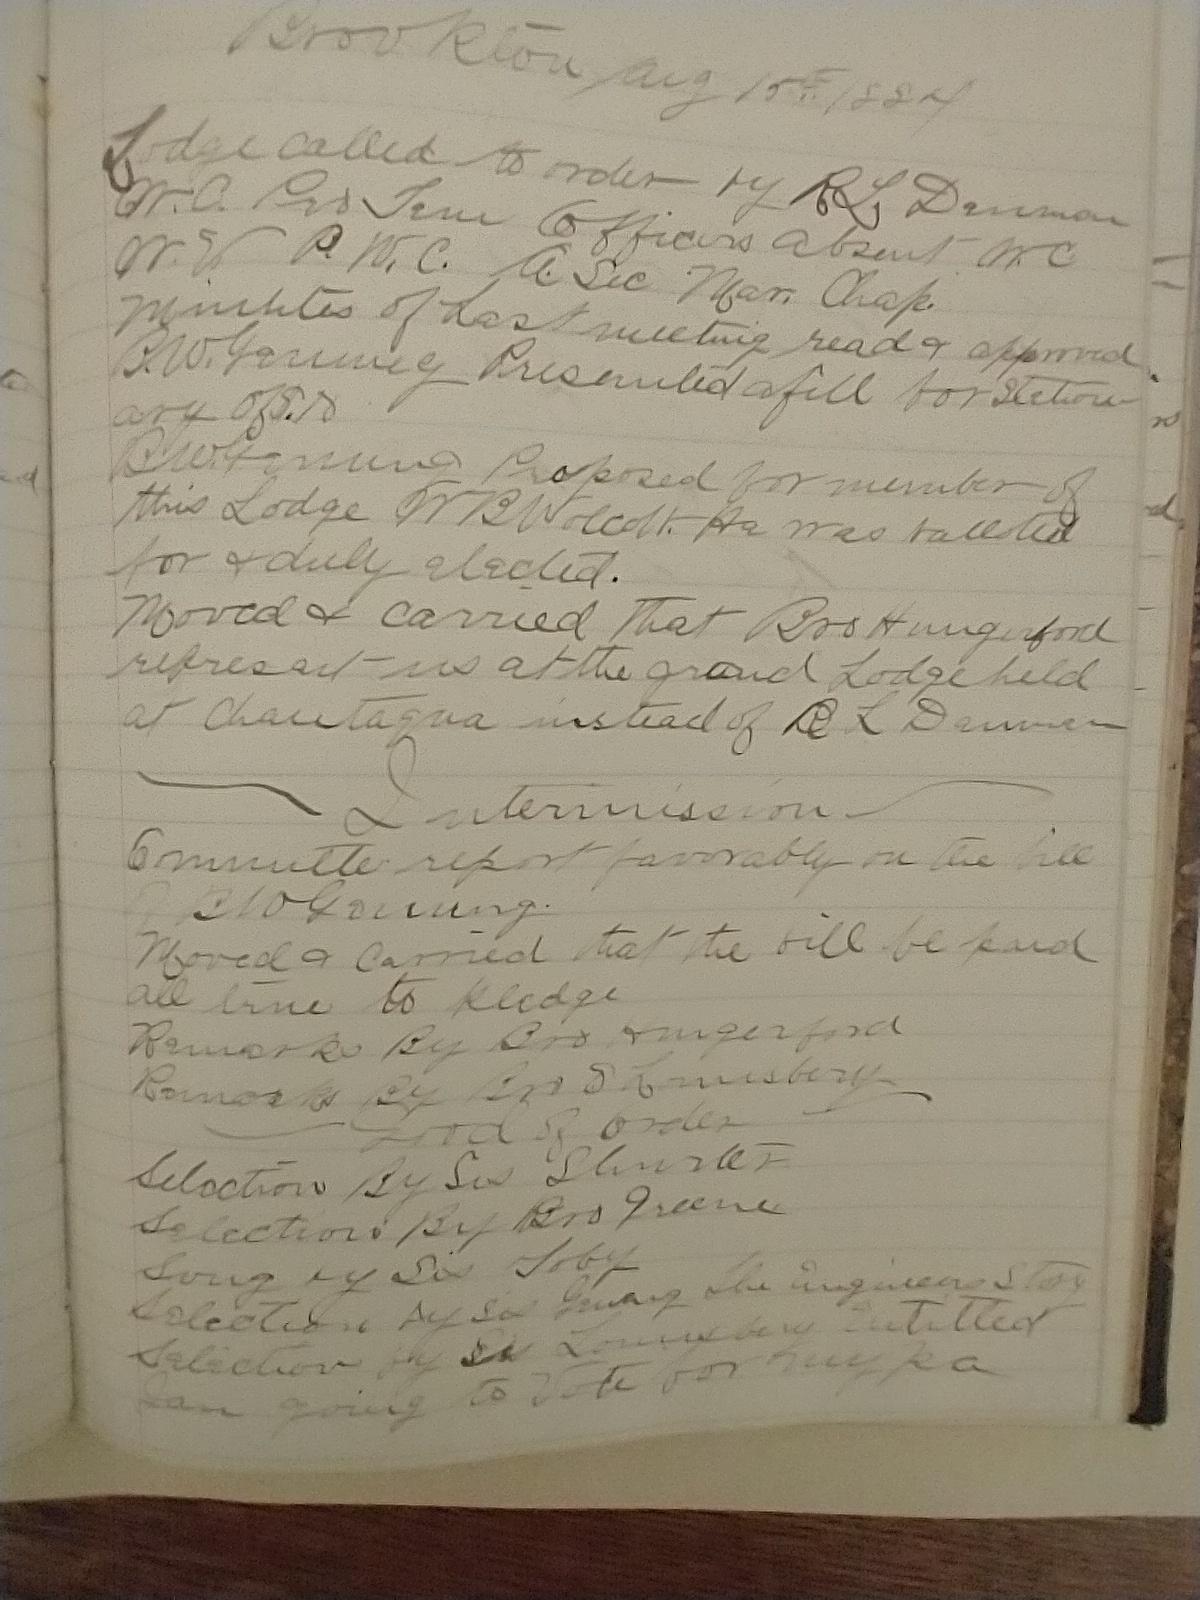 Brookton Aug 15th 1884
Lodge called to order by R L Denman
W.C. Pro Tem Officers absent W.C
W.V P.W.C. A Sec Mar. Chap.
Minutes of Last meeting read & approved
B.W. Genung Presented a bill for station
ary of
B.W. Genung Proposed for member of
this Lodge W B Wolcott. He was balloted
for & duly elected.
Moved & carried that Bro Hungerford
represent us at the grand Lodge held
at Chautaqua instead of R L Denman
Intermission
Committe report favorably on the bill
B W Genung.
Moved & carried that the bill be paid
all true to Pledge
Remarks By Bro Hungerford
Remarks By Bro S Lounsbery
Good of Order
Selection By Sis Shurter
Selection By Bro Greene
Song by Sis Toby
Selection by Sis Genung The Engineers Story
Selection by Sis Lounsbery Entitled
I am going to Vote for my pa